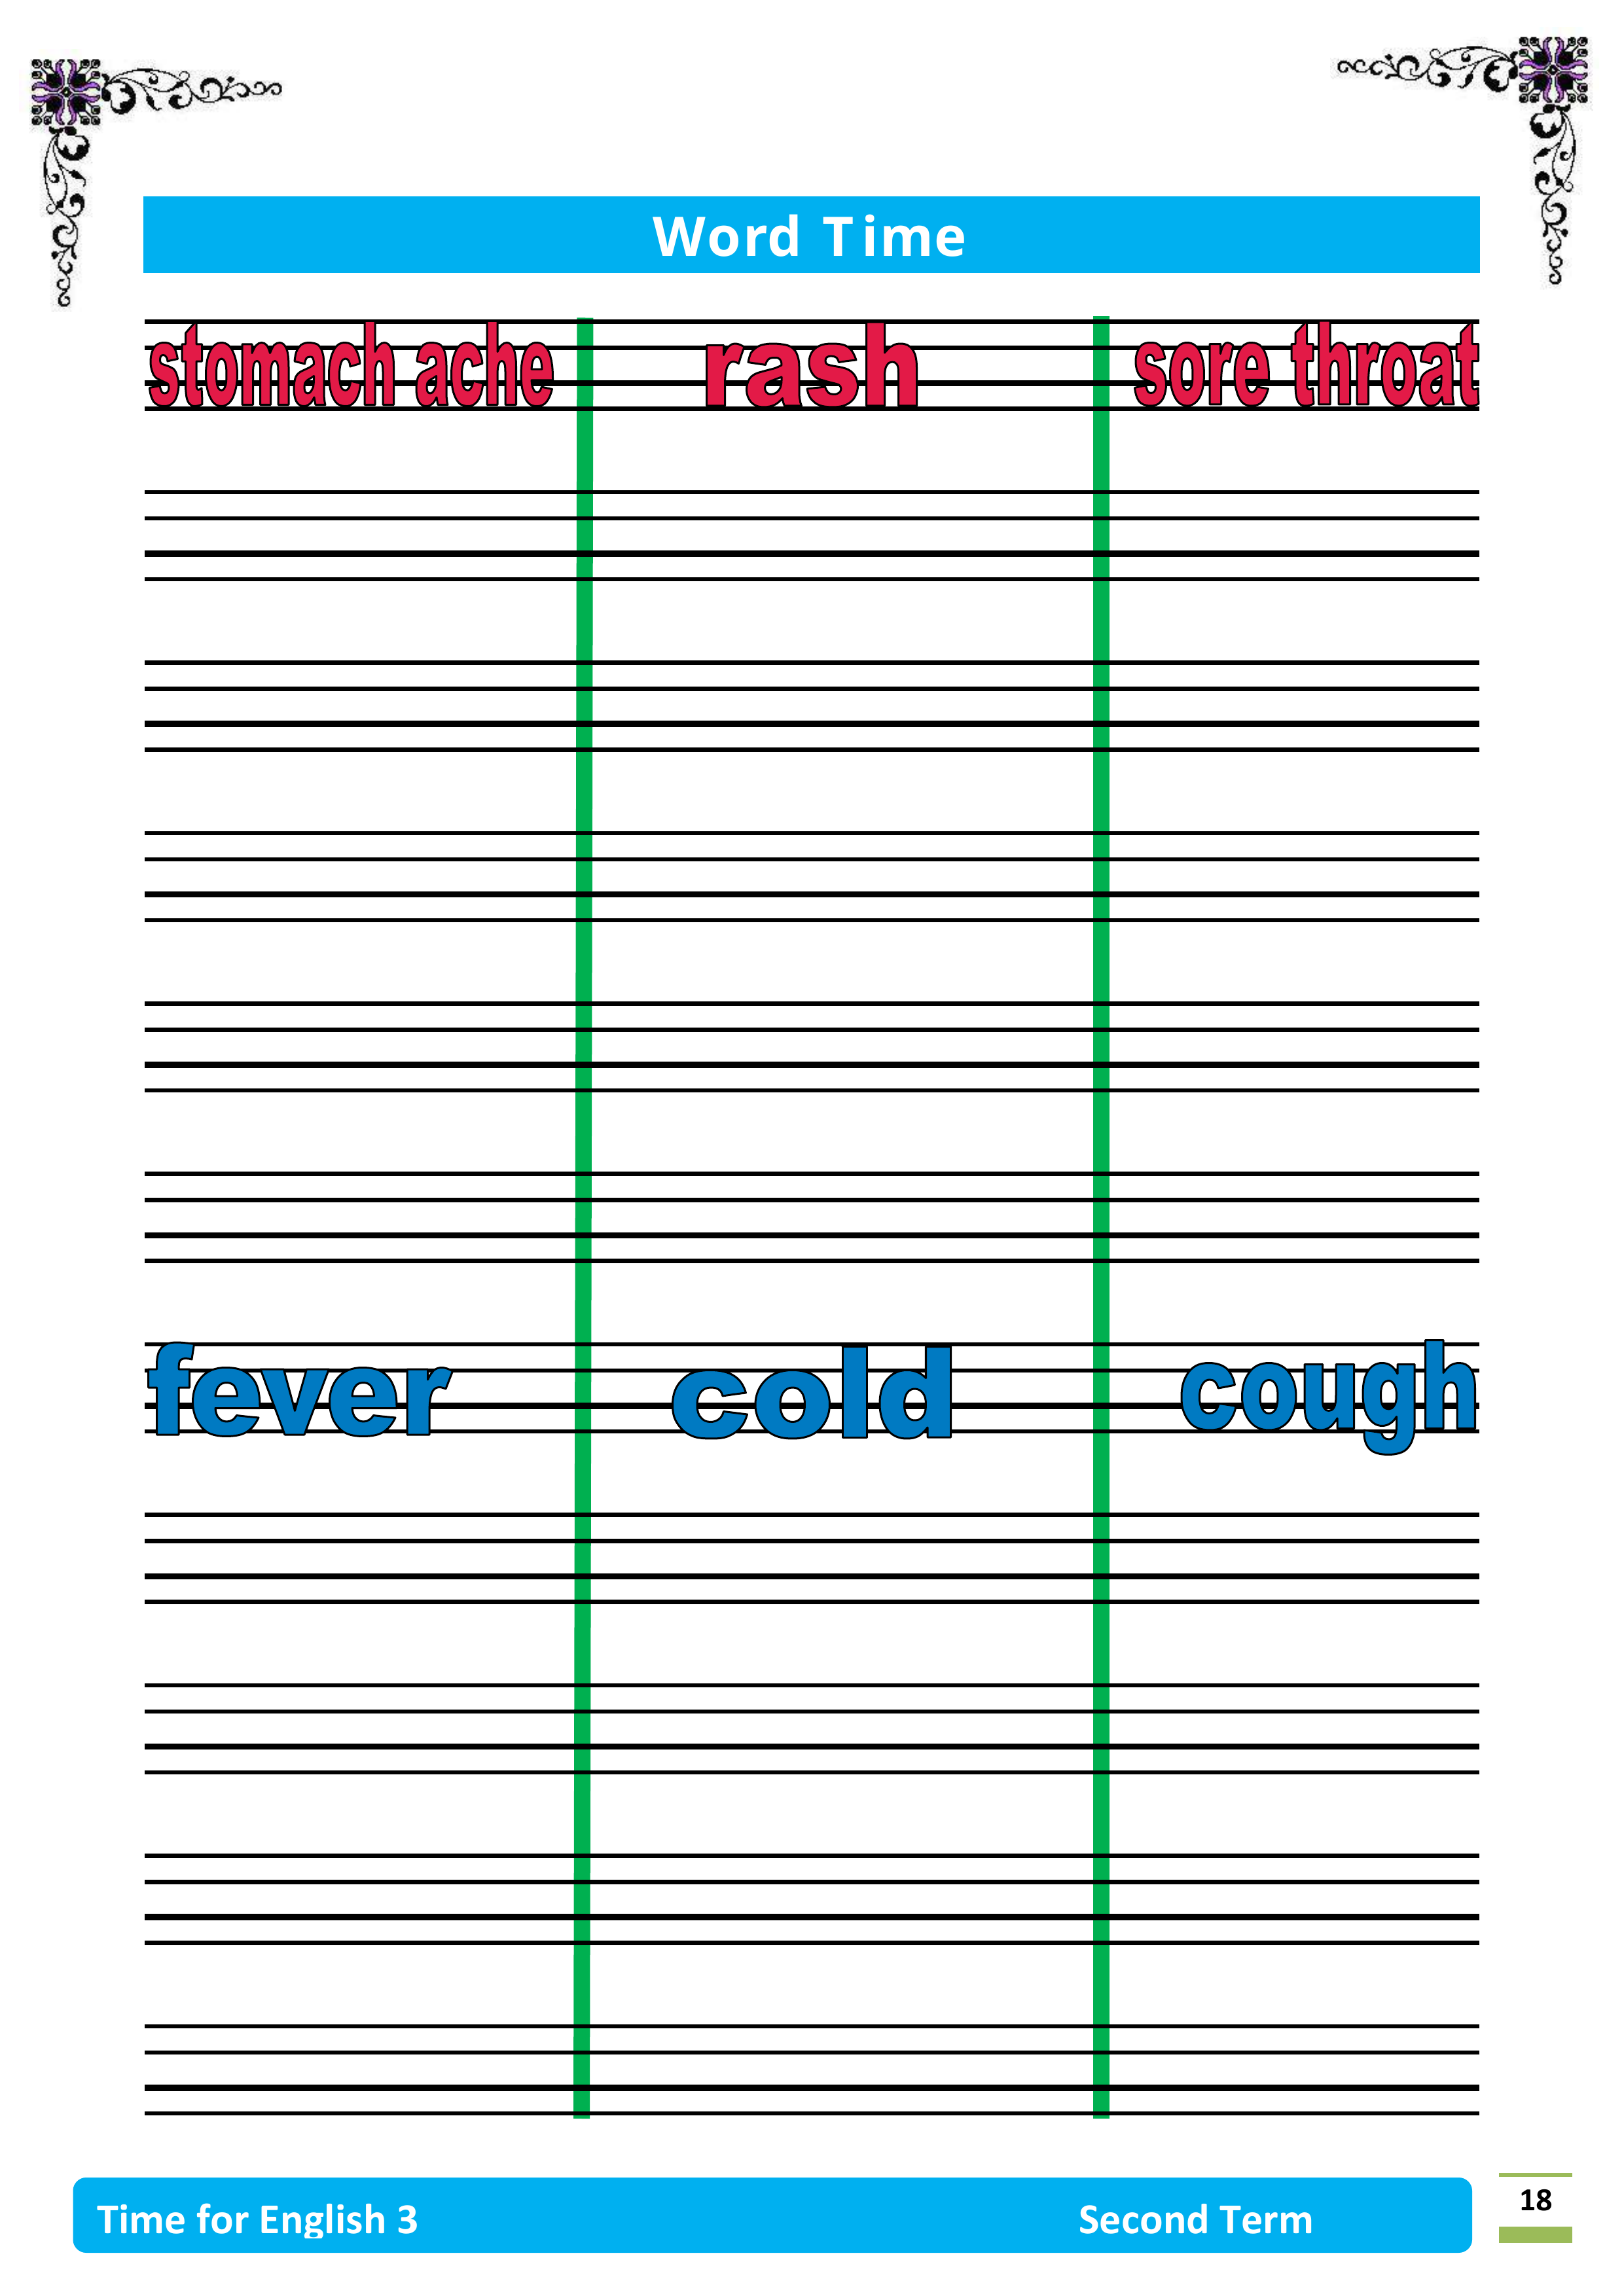 Word Time
stomach ache rash sore throat
fever cold cough
Time for English 3 Second Term 18